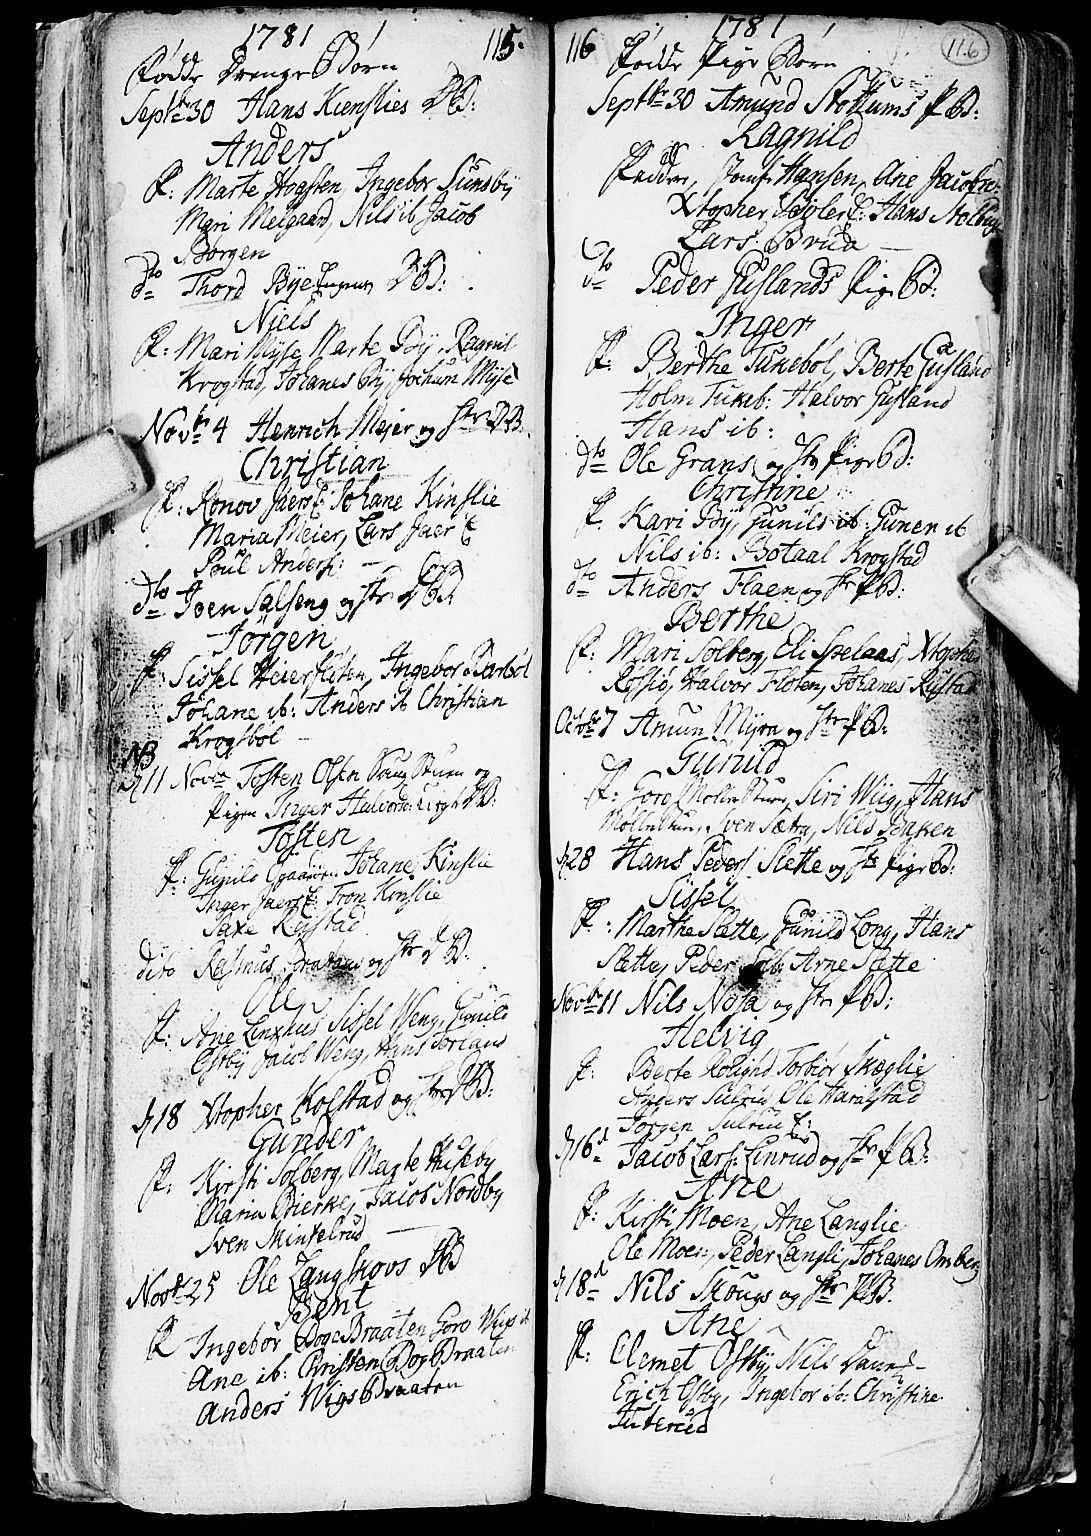 1781 115.
Fødde Drenge Børn
Septbr 30 Hans Kienslies DB:
Anders
F: Marte Hogsten, Ingebor Sunsby
Mari Melgaard, Nils ib Jacob
Borgen
dto Thord Bye DB:
Niels
F: Mari Myse, Marte Bÿ, Ragnil
Krogstad, Johanes Bÿ, Jochum Myse
Novbr 4 Henrich Mejer og Hr DB.
Christian
F: Ronov Jaer E Johane Kinslie
Maria Meier, Lars Jaer E
Poul Anders:
dto Joen Salseng og Hr DB
Jørgen
F: Sissel Heiersløten, Ingebor Barbøl
Johane ib: Anders ib Christian
Krogsbøl
NB
d 11 Novbr Tosten Olsen og
Pigen Inger Halvord: DB:
Tosten
F: Gunild Johane Kinslie
Inger Jaers E: Tron Kinslie
Saxe Reistad
dito Rasmus og Hr DB.
Ole
F: Ane Linxhus Sissel Weng, Gunild
Osby Jacob Weng, Hans
d 18 Xtopher Kolstad og Hr DB:
Gunder
F: Kirsti Solberg, Marte Huseby
Maria Bierke, Jacob Nordby
Sven Minkelrud
Novbr 25 Ole Langskovs DB
Bent
F Ingebor Boge Braaten Goro Wigs ib
Ane ib: Christen Bog Braaten
Anders Wigs Braaten
1781
116 116
Fødde Pige Børn
Septbr 30 Amund Stokkums PB:
Ragnild
Fadder, Jomfr Hansen, Ane Jacobs:
Xtopher E: Hans
Lars Brua
dto Peder Huslands Pige B:
Inger
F: Berthe Tukebøl, Berte Husland
Holm Tukeb: Halvor Husland
Hans ib:
dto Ole Grans og Hr Pige B:
Christine
F. Kari Bÿ, Gunild ib Guner ib
Nils ib: Botaal Krogstad
dto Anders Flaen og Hr PB:
Berthe
F: Mari Solberg, Eli Spelaas, Xtopher
Røssig, Halvor Floten, Johanes Rustad
Octobr 7 Amun Myra og Hr PB:
Gunild
F: Goro Mollestuen, Siri Wiig, Hans
Mollestuen, Sven Sætra, Nils Bakken
d 28 Hans Peders Slette og Hr Pige B:
Sissel
F: Marthe Slette, Gunild Long, Hans
Slette, Peder Arne Slette
Novbr 11 Nils Nosa og Hr PB:
Helvig
F: Berte Rolighd Torbior Skøglie
Anders Sulrud Ole Haralstad
Jørgen Sulrud E:
d 16 Jacob Lars: Linrud og Hr PB:
Ane
F: Kirsti Moen, Ane Langlie
Ole Moen, Peder Langli, Johanes Omberg
d 18 Nils Skougs og Hr PB.
Ane
F: Clemet Osby, Nils
Erich Osby, Ingebor ib: Christine